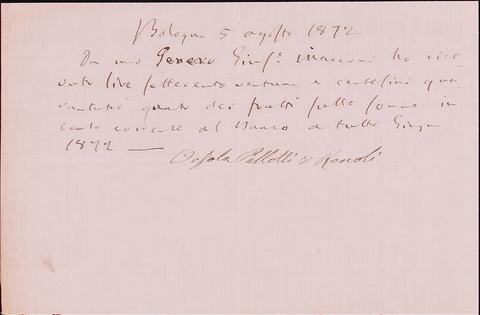 Bologna 5 agosto 1872
Da mio Genero Giusᵉ Marconi ho rice-
vuto lire settecento ventuna e centesimi qua-
rantatrè quota dei frutti sulle somme in
conto corrente al Banco a tutto Giugno
1872 —
Orsola Pellotti Vᵃ Renoli